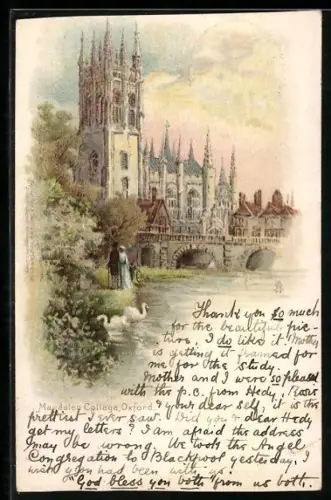 Thank you so much
for the beautiful pic-
ture, I do like it. Mother
is getting it framed for
me for the study.
Mother and I were so pleased
with the p.c. from Hedy,
Magdalen College, Oxford.
& your dear self, it is the
prettiest I ever saw. Did you & dear Hedy
get my letter? I am afraid the address
may be wrong. We took the Angel
Congregation to Blackpool yesterday. I
wish you had been with us.
God bless you both from us both.